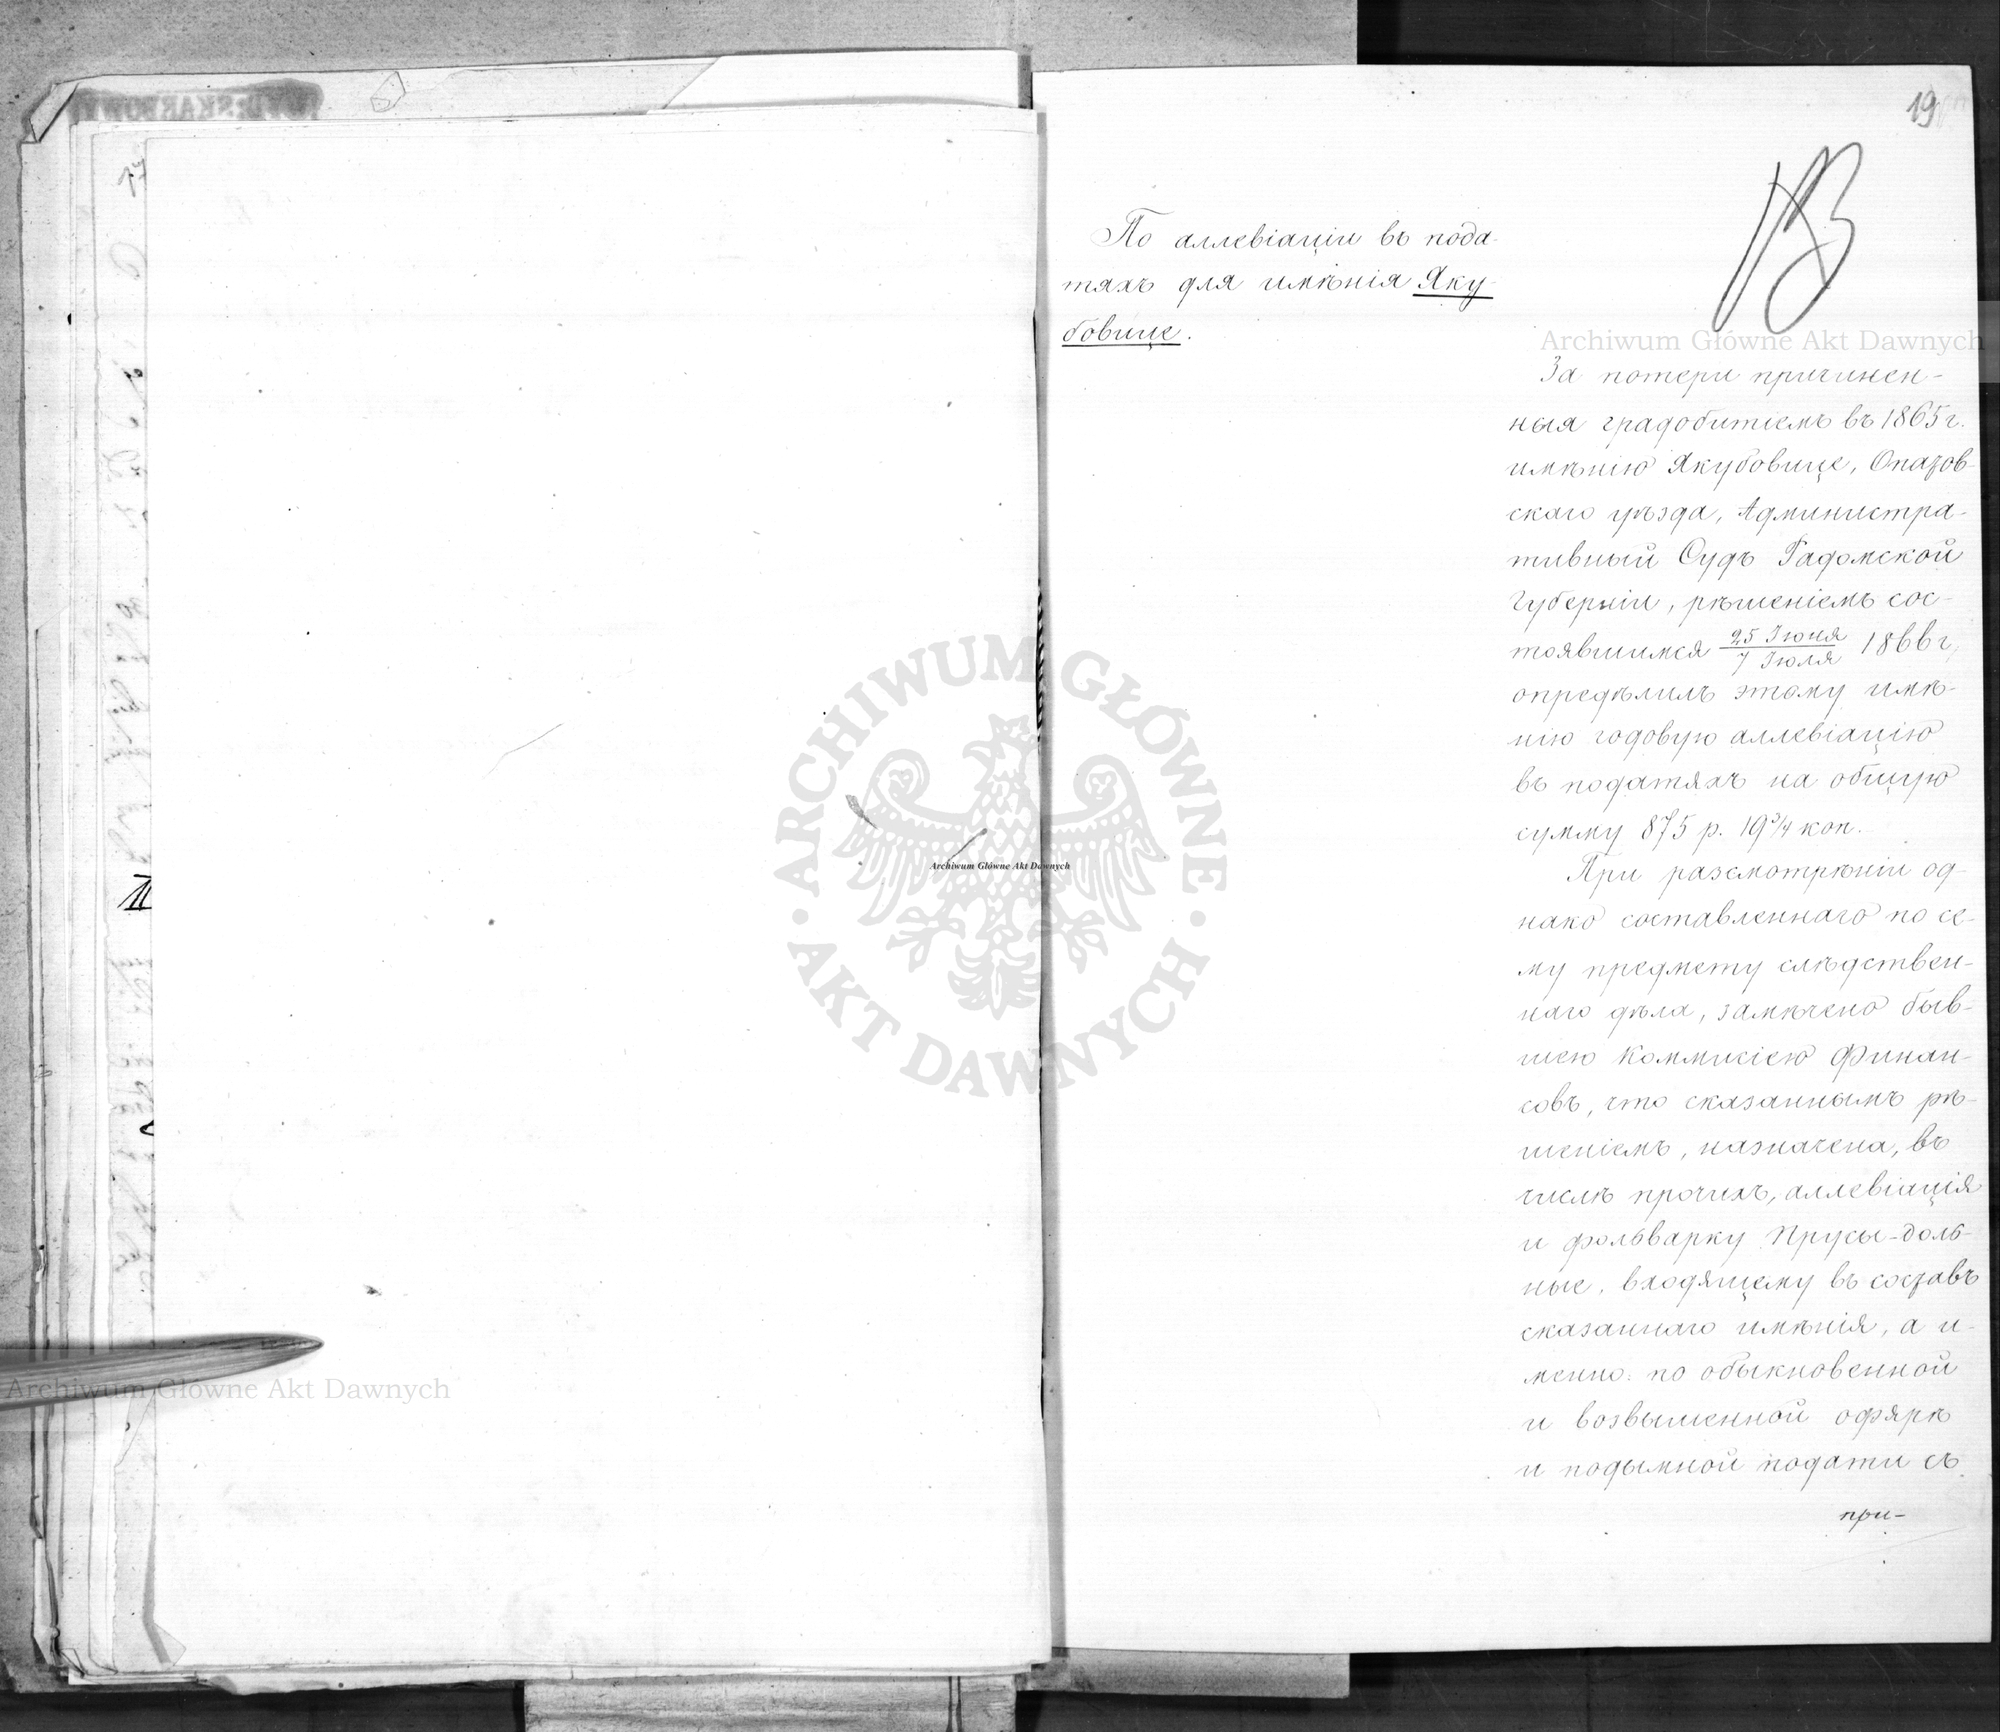 19
По аллевіаціи въ пода-
тяхъ для имѣнія Яку-
бовице.
За потери причинен-
ныя градобитіемъ въ 1865 г.
имѣнію Якубовице, Опатов-
скаго уѣзда, Администра-
тивный Судъ Радомской
Губерніи, рѣшеніемъ сос-
тоявшимся 25 Іюня / 7 Іюля 1866 г,
опредѣлилъ этому имѣ-
нію годовую аллевіацію
въ податяхъ на общую
сумму 875 р. 19 3/4 коп.
При разсмотрѣніи од-
нако составленнаго по се-
му предмету слѣдствен-
наго дѣла, замѣчено быв-
шею Коммисіею Финан-
совъ, что сказаннымъ рѣ-
шеніемъ, назначена, въ
числѣ прочихъ, аллевіація
и фольварку Прусы-доль-
ные, входящему въ составъ
сказаннаго имѣнія, а и-
менно: по обыкновенной
и возвышенной офярѣ
и подымной подати съ
при-
Archiwum Główne Akt Dawnych
Archiwum Główne Akt Dawnych
Archiwum Główne Akt Dawnych
ARCHIWUM GŁÓWNE
AKT DAWNYCH
17